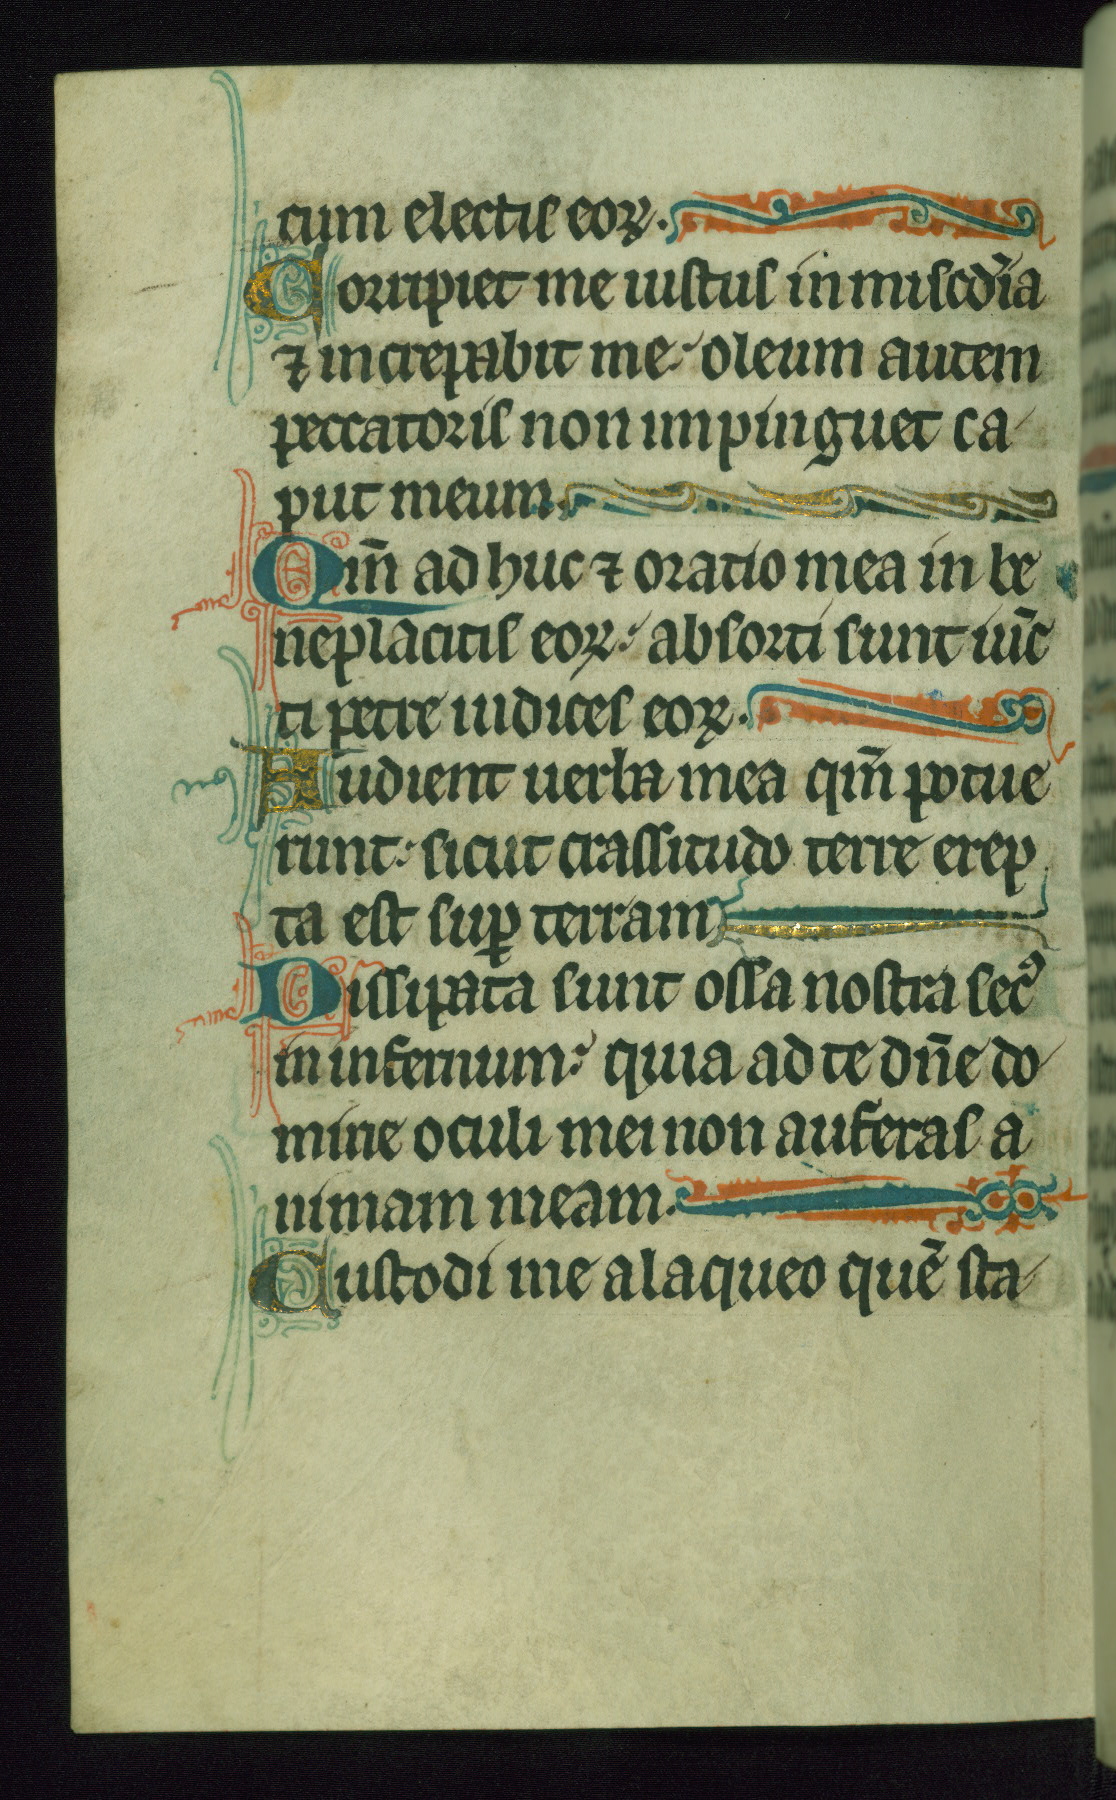 cum electis eoꝝ.
Corripiet me iustus in miscd̄ia
⁊ increpabit me: oleum autem
peccatoris non impinguet ca
put meum.
Qm̄ ad huc ⁊ oratio mea in be
neplacitis eoꝝ: absorti sunt iūc
ti petre iudices eoꝝ.
Audient uerba mea qm̄ potue
runt: sicut crassitudo terre erep
ta est suꝑ terram
Dissipata sunt ossa nostra secꝰ
in infernum: quia ad te dn̄e do
mine oculi mei non auferas a
nimam meam.
Custodi me a laqueo quē sta